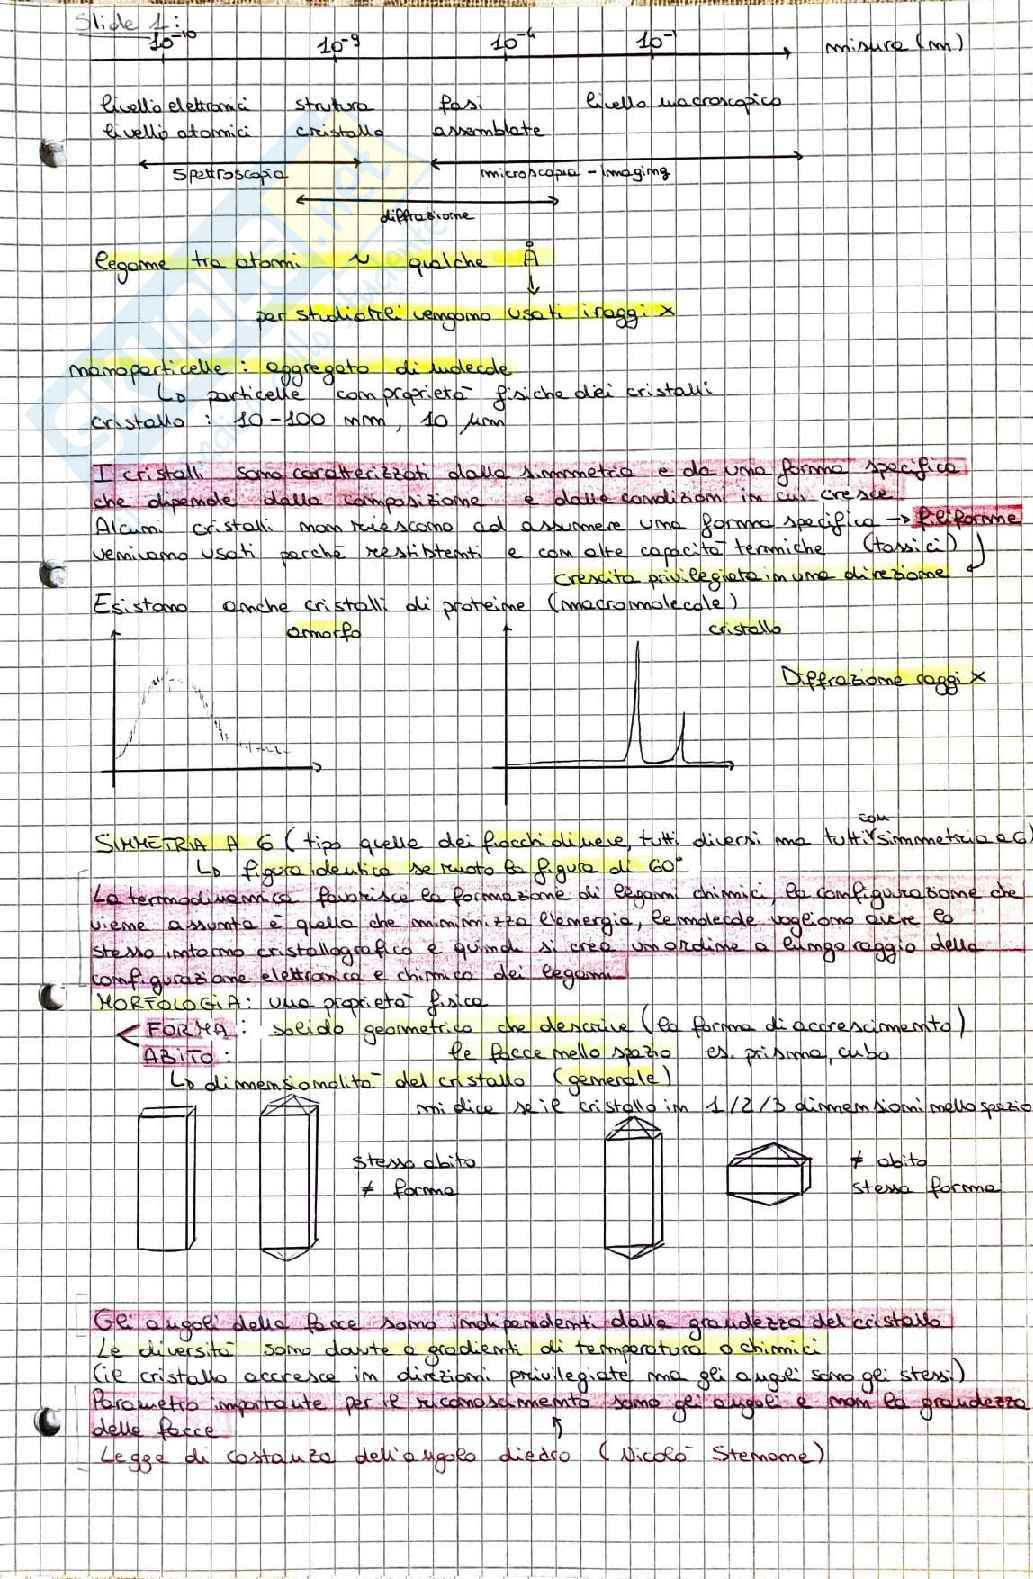 Slide 1:
10⁻¹⁰ 10⁻⁹ 10⁻⁶ 10⁻¹ misure (m)
livello elettronici struttura fasi livello macroscopico
livello atomici cristallo assemblate
spettroscopia microscopia - imaging
diffrazione
legame tra atomi ~ qualche Å
↓
per studiarli vengono usati i raggi x
nanoparticelle : aggregato di molecole
↳ particelle con proprietà fisiche dei cristalli
cristallo : 10-100 nm, 10 μm
I cristalli sono caratterizzati dalla simmetria e da una forma specifica
che dipende dalla composizione e dalle condizioni in cui cresce
Alcuni cristalli non riescono ad assumere una forma specifica → filiforme
venivano usati perché resistenti e con alte capacità termiche (tossici)
crescita privilegiata in una direzione
Esistono anche cristalli di proteine (macromolecole)
amorfo cristallo
Diffrazione raggi x
SIMMETRIA A 6 (tipo quella dei fiocchi di neve, tutti diversi ma tutti con simmetria a 6)
↳ figura identica se ruoto la figura di 60°
La termodinamica favorisce la formazione di legami chimici, la configurazione che
viene assunta è quella che minimizza l'energia, le molecole vogliono avere lo
stesso intorno cristallografico e quindi si crea un ordine a lungo raggio della
configurazione elettronica e chimica dei legami
MORFOLOGIA: una proprietà fisica
FORMA : solido geometrico che descrive (la forma di accrescimento)
ABITO : le facce nello spazio es. prisma, cubo
↳ dimensionalità del cristallo (generale)
mi dice se il cristallo in 1/2/3 dimensioni nello spazio
stesso abito ≠ abito
≠ forma stessa forma
Gli angoli delle facce sono indipendenti dalla grandezza del cristallo
Le diversità sono dovute a gradienti di temperatura o chimici
(il cristallo accresce in direzioni privilegiate ma gli angoli sono gli stessi)
Parametro importante per il riconoscimento sono gli angoli e non la grandezza
delle facce
Legge di costanza dell'angolo diedro (Nicolò Stenone)